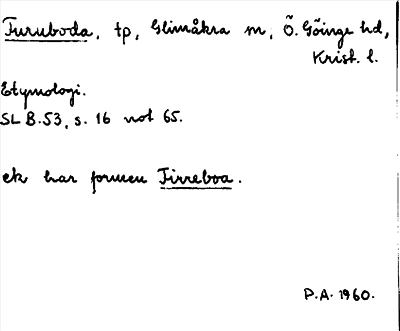 Furuboda, tp, Glimåkra sn, Ö. Göinge hd,
Krist. l.
Etymologi.
SL B.53, s. 16 not 65.
ek har formen Firreboa.
P.A. 1960.